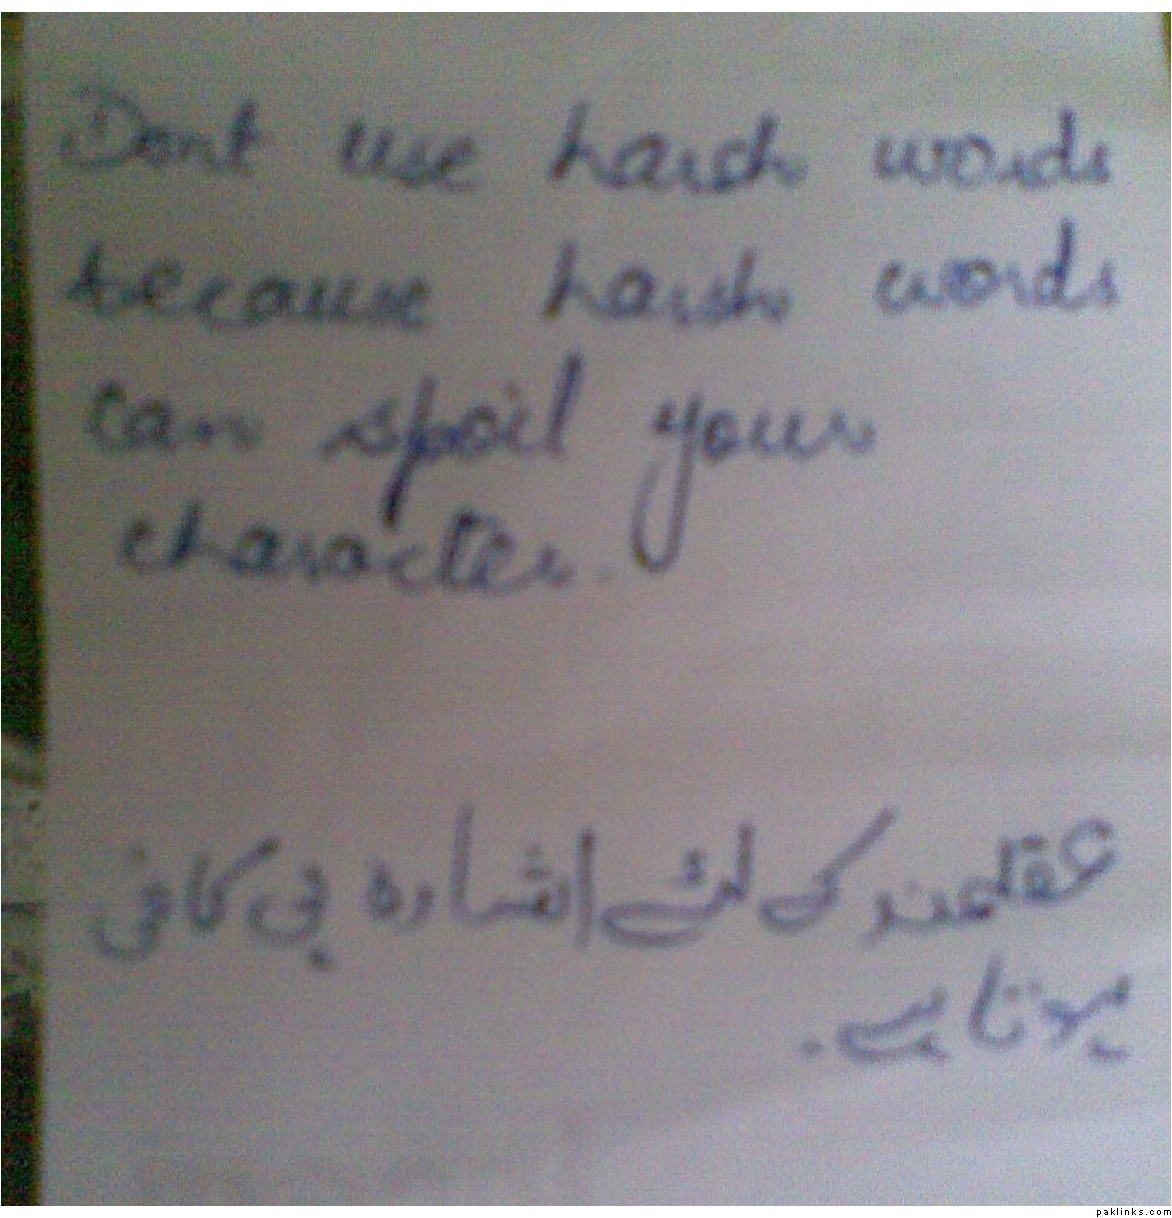 Dont use harsh words
because harsh words
can spoil your
character.
عقلمند کی لئے اشارہ ہی کافی
ہوتا ہے.
paklinks.com